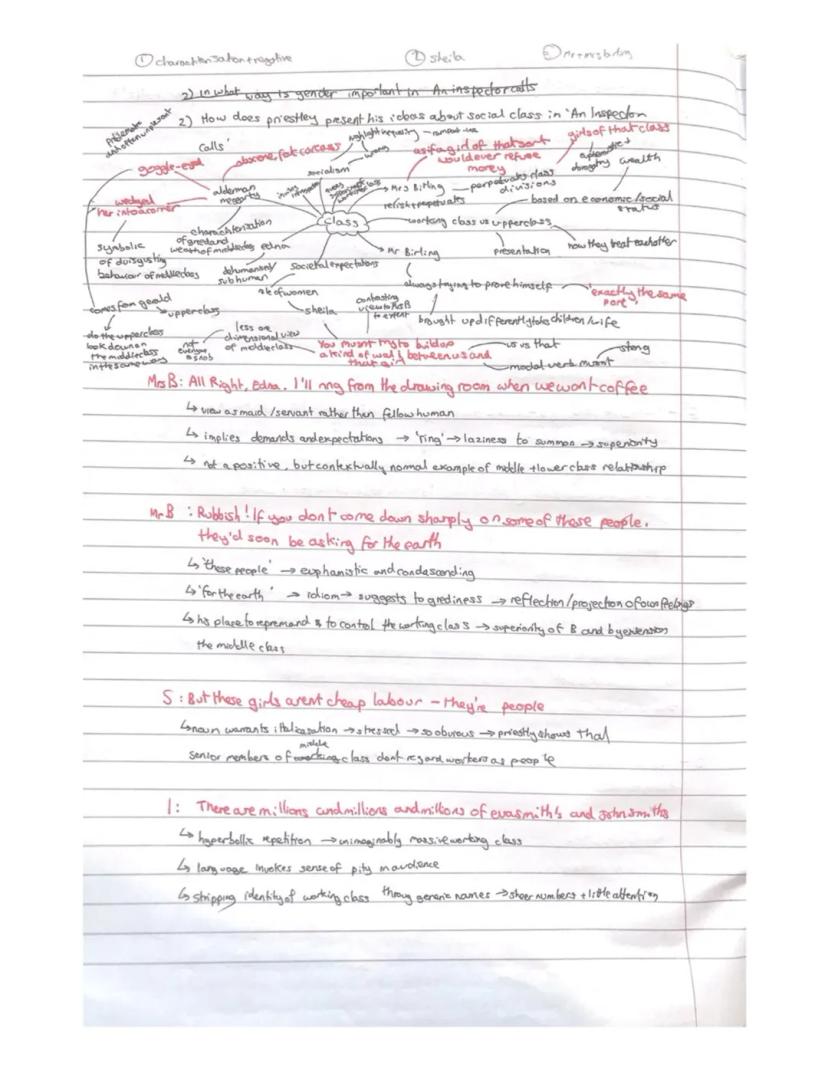 ① characterisation + negative ② sheila ③ Mr + mrs birling
2) In what way is gender important in An inspector calls
2) How does priestley present his ideas about social class in 'An Inspector
Calls'
problematic and often unpleasant
goggle-eyed
obscene, fat carcass
highlight inequality
wrong
socialism
as if a girl of that sort would ever refuse money
girls of that class
wealth
wedged her into a corner
alderman meggarty
class
Mrs Birling
perpetuates class divisions
relish + perpetuates
based on economic/social status
working class vs upper class
presentation
how they treat each other
symbolic of disgusting behaviour of middle class
characterisation of greed and wealth of middle class
edna
dehumanised/ subhuman
societal expectations
Mr Birling
always trying to prove himself
"exactly the same port"
brought up differently to children/wife
comes from gerald
upperclass
role of women
sheila
contrasting view to Mrs B to extent
do the upperclass look down on the middle class in the same way
not everyone a snob
less one dimensional view of middle class
You musnt try to build up a kind of wall between us and that girl
us vs that
modal verb musnt
strong
Mrs B: All Right, Edna. I'll ring from the drawing room when we want coffee
↳ view as maid/servant rather than fellow human
↳ implies demands and expectations → 'ring' → laziness to summon → superiority
↳ not a positive, but contextually normal example of middle + lower class relationship
Mr B : Rubbish! If you dont come down sharply on some of these people,
they'd soon be asking for the earth
↳ 'these people' → euphamistic and condascending
↳ 'for the earth' → idiom → suggests to grediness → reflection/projection of own feelings
↳ his place to repremand & to control the working class → superiority of B and by extension
the middle class
S : But these girls arent cheap labour – they're people
↳ noun warrants italicasation → stressed → so obvious → priestly shows that
senior members of middle class dont regard workers as people
I: There are millions and millions and millions of eva smith's and John smiths
↳ hyperbolic repetition → unimaginably massive working class
↳ language invokes sense of pity in audience
↳ stripping identity of working class throug generic names → sheer numbers + little attention